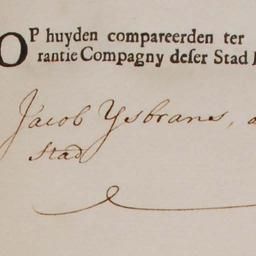 OP huyden compareerden ter
rantie Compagny deser Stad
Jacob Ysbrans,
stad